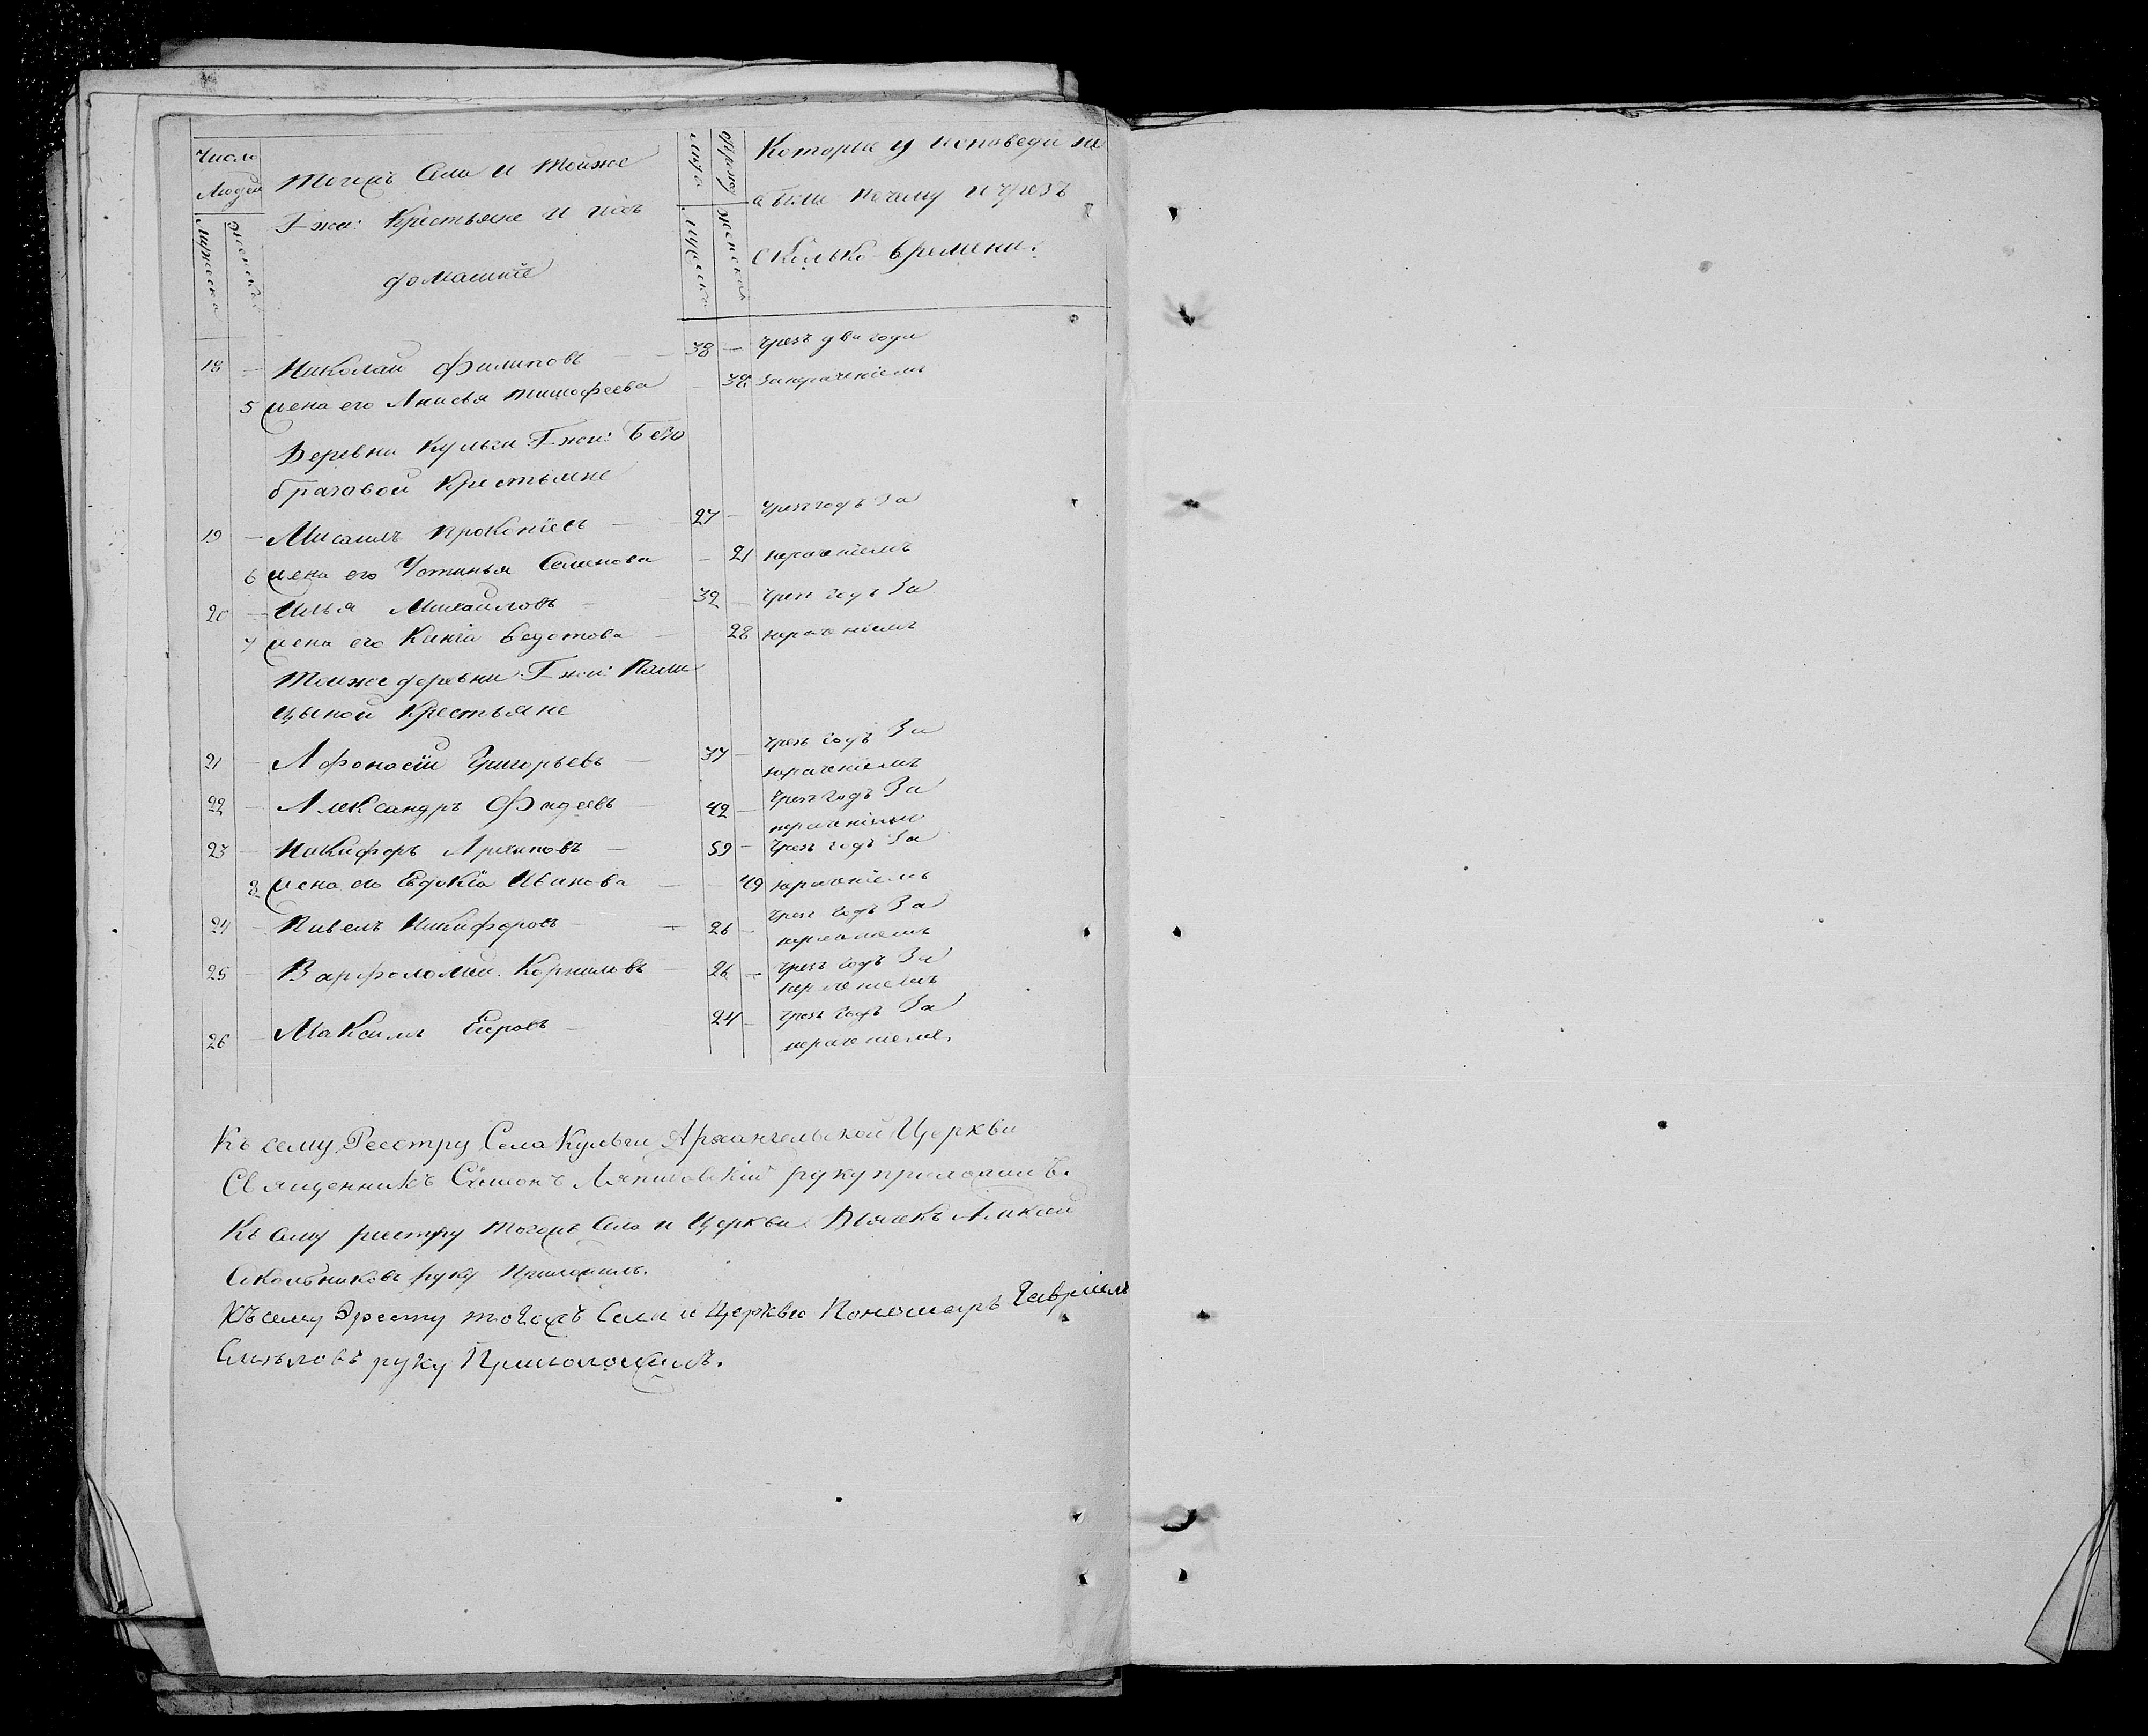 Число Людей
Мужеска
Женска
тогожъ села и тойже
Г-жи: Крестьяне и ихъ
домашніе
Лѣта
мужеска
женска
Которые у исповеди не
были почему и чрезъ
сколько времени.
18 — Николай Филиповъ — 38 — чрезъ два года
5 жена его Анисья тимофеева — 38 занерачениемъ
Деревни Кульги Г-жи: Безо
бразовой Крестьяне
19 — Мисаилъ Прокопіевъ — 27 — чрезъ годъ За
6 жена его Устинья Семенова — 21 нерачениемъ
20 — Илья Михаиловъ — 32 — чрезъ годъ За
7 жена его Ксенія Федотова — 28 нерачениемъ
Тойже деревни Г-жи: Пали
цыной Крестьяне
21 — Афонасій Григорьевъ — 37 — чрезъ годъ За
нерачениемъ
22 — Александръ Фадеевъ — 42 — чрезъ годъ За
нерачениемъ
23 — Никифоръ Архиповъ — 59 — чрезъ годъ За
8 жена его Евдокіа Иванова — 49 нерачениемъ
24 — Павелъ Никифоровъ — 26 — чрезъ годъ За
нерачениемъ
25 — Варфоломей Корниловъ — 26 — чрезъ годъ За
нерачениемъ
26 — Максимъ Егоровъ — 24 — чрезъ годъ За
нерачениемъ.
Къ сему Реестру Села Кульги Архангельской Церкви
Священникъ Сѵмеонъ руку приложилъ.
Къ сему реестру тогожъ Села и Церкви Дьячекъ
Сокольниковъ руку приложилъ.
Къ сему тогожъ Села и Церквы Пономарь Гаврилъ
руку Приложилъ.